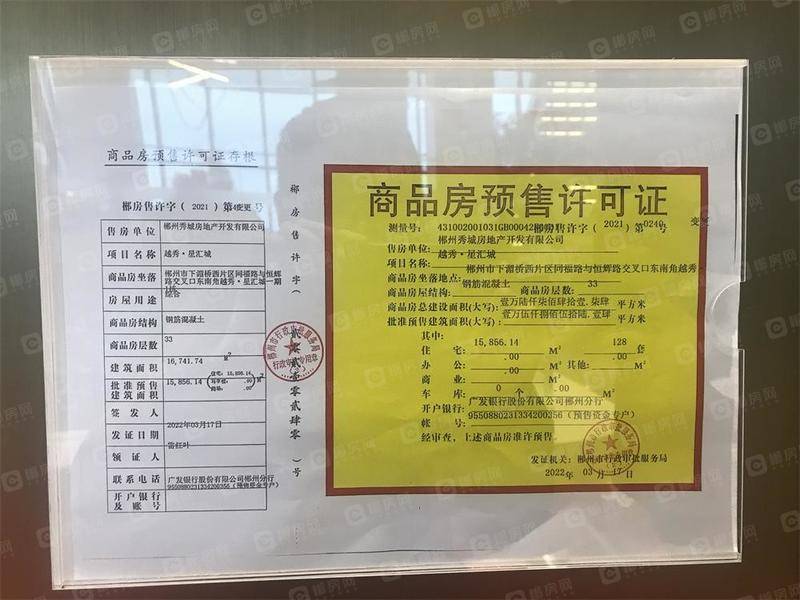 商品房预售许可证存根
郴房售许字（2021）第 变更 号
售房单位 郴州秀城房地产开发有限公司
项目名称 越秀·星汇城
商品房坐落 郴州市下湄桥西片区同福路与恒辉
路交叉口东南角越秀·星汇城一期
房屋用途 综合
商品房结构 钢筋混凝土
商品房层数 33
建筑面积 16,741.74 M²
批准预售
建筑面积 15,856.14 （住宅：15,856.14 M²
签发人
发证日期 2022年03月17日
领证人
联系电话 广发银行股份有限公司郴州分行
9550880231334200356（预售资金专户）
开户银行
及账号
郴房售许字（
贰零贰壹
）第
零贰肆零
）号
郴州市行政审批服务局
行政审批专用章
商品房预售许可证
测量号：431002001031GB00042 郴房售许字（2021）第 0240 号 变更
售房单位：郴州秀城房地产开发有限公司
项目名称：越秀·星汇城
商品房坐落地点：郴州市下湄桥西片区同福路与恒辉路交叉口东南角越秀
房屋结构：钢筋混凝土 商品房层数：33
商品房总建设面积(大写)：壹万陆仟柒佰肆拾壹.柒肆 平方米
批准预售建筑面积(大写)：壹万伍仟捌佰伍拾陆.壹肆 平方米
其中：
住宅：15,856.14 M² 128 套
办公：.00 M² 其他：.00 M²
商业：.00 M²
车库：0 个 .00 M²
开户银行：广发银行股份有限公司郴州分行
帐号：9550880231334200356（预售资金专户）
经审查，上述商品房准许预售。
发证机关：郴州市行政审批服务局
2022年 03月 17日
郴房网